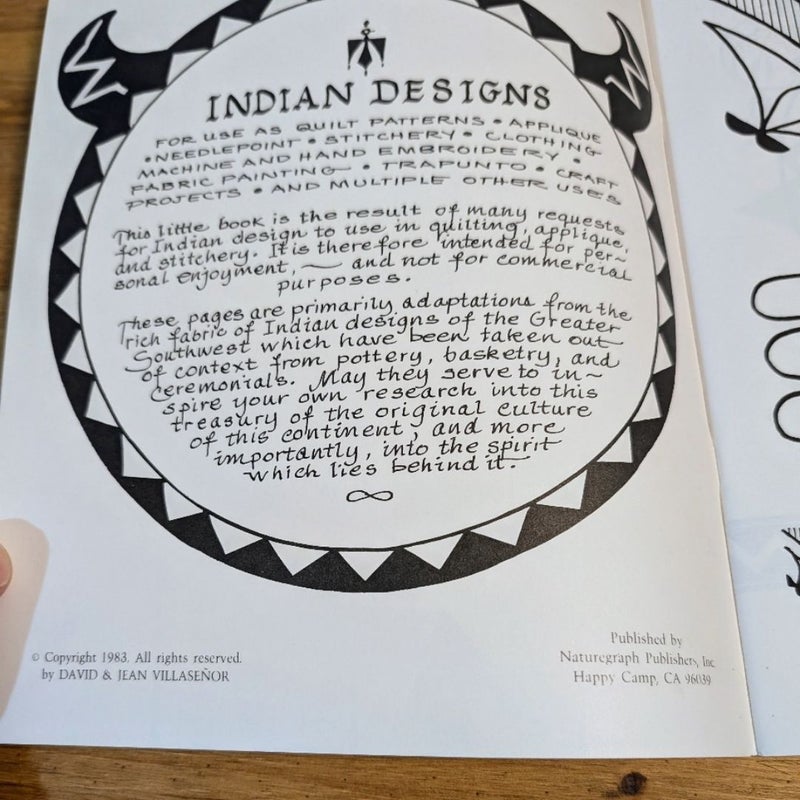 INDIAN DESIGNS
FOR USE AS QUILT PATTERNS • APPLIQUE
• NEEDLEPOINT • STITCHERY • CLOTHING
MACHINE AND HAND EMBROIDERY •
FABRIC PAINTING • TRAPUNTO • CRAFT
PROJECTS • AND MULTIPLE OTHER USES
This little book is the result of many requests
for Indian design to use in quilting, applique,
and stitchery. It is therefore intended for per~
sonal enjoyment, — and not for commercial
purposes.
These pages are primarily adaptations from the
rich fabric of Indian designs of the Greater
Southwest which have been taken out
of context from pottery, basketry, and
ceremonials. May they serve to in~
spire your own research into this
treasury of the original culture
of this continent, and more
importantly, into the spirit
which lies behind it.
© Copyright 1983. All rights reserved.
by DAVID & JEAN VILLASEÑOR
Published by
Naturegraph Publishers, Inc
Happy Camp, CA 96039